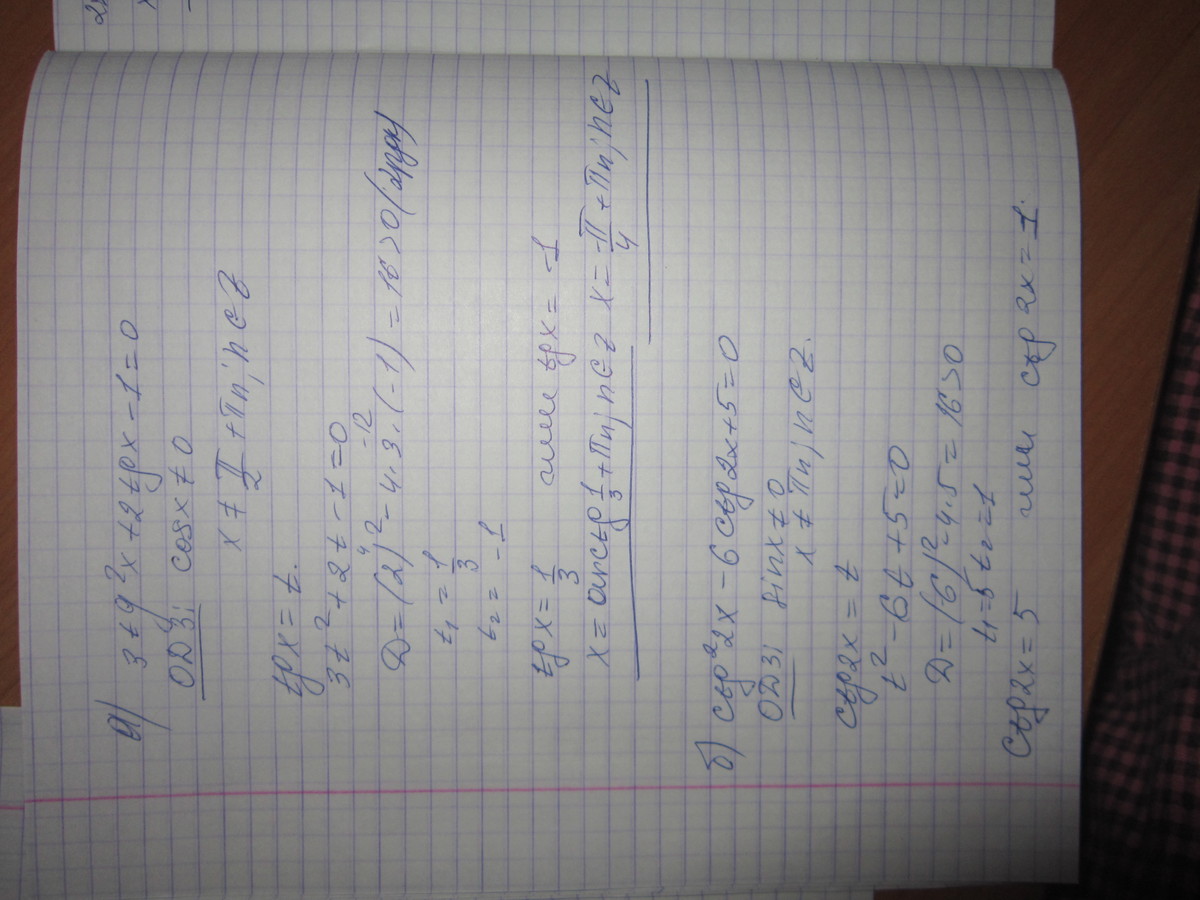 а) 3 tg²x + 2 tgx - 1 = 0
ОДЗ: cosx ≠ 0
x ≠ π/2 + πn; n∈Z
tgx = t.
3t² + 2t - 1 = 0
D = (2)² - 4·3·(-1) = 16 > 0 (2 рдк)
4 -12
t₁ = 1/3
t₂ = -1
tgx = 1/3 или tgx = -1
x = arctg 1/3 + πn; n∈Z x = -π/4 + πn; n∈Z
б) ctg²2x - 6 ctg2x + 5 = 0
ОДЗ: sinx ≠ 0
x ≠ πn; n∈Z.
ctg2x = t
t² - 6t + 5 = 0
D = (-6)² - 4·5 = 16 > 0
t₁ = 5 t₂ = 1
Ctg2x = 5 или ctg2x = 1.